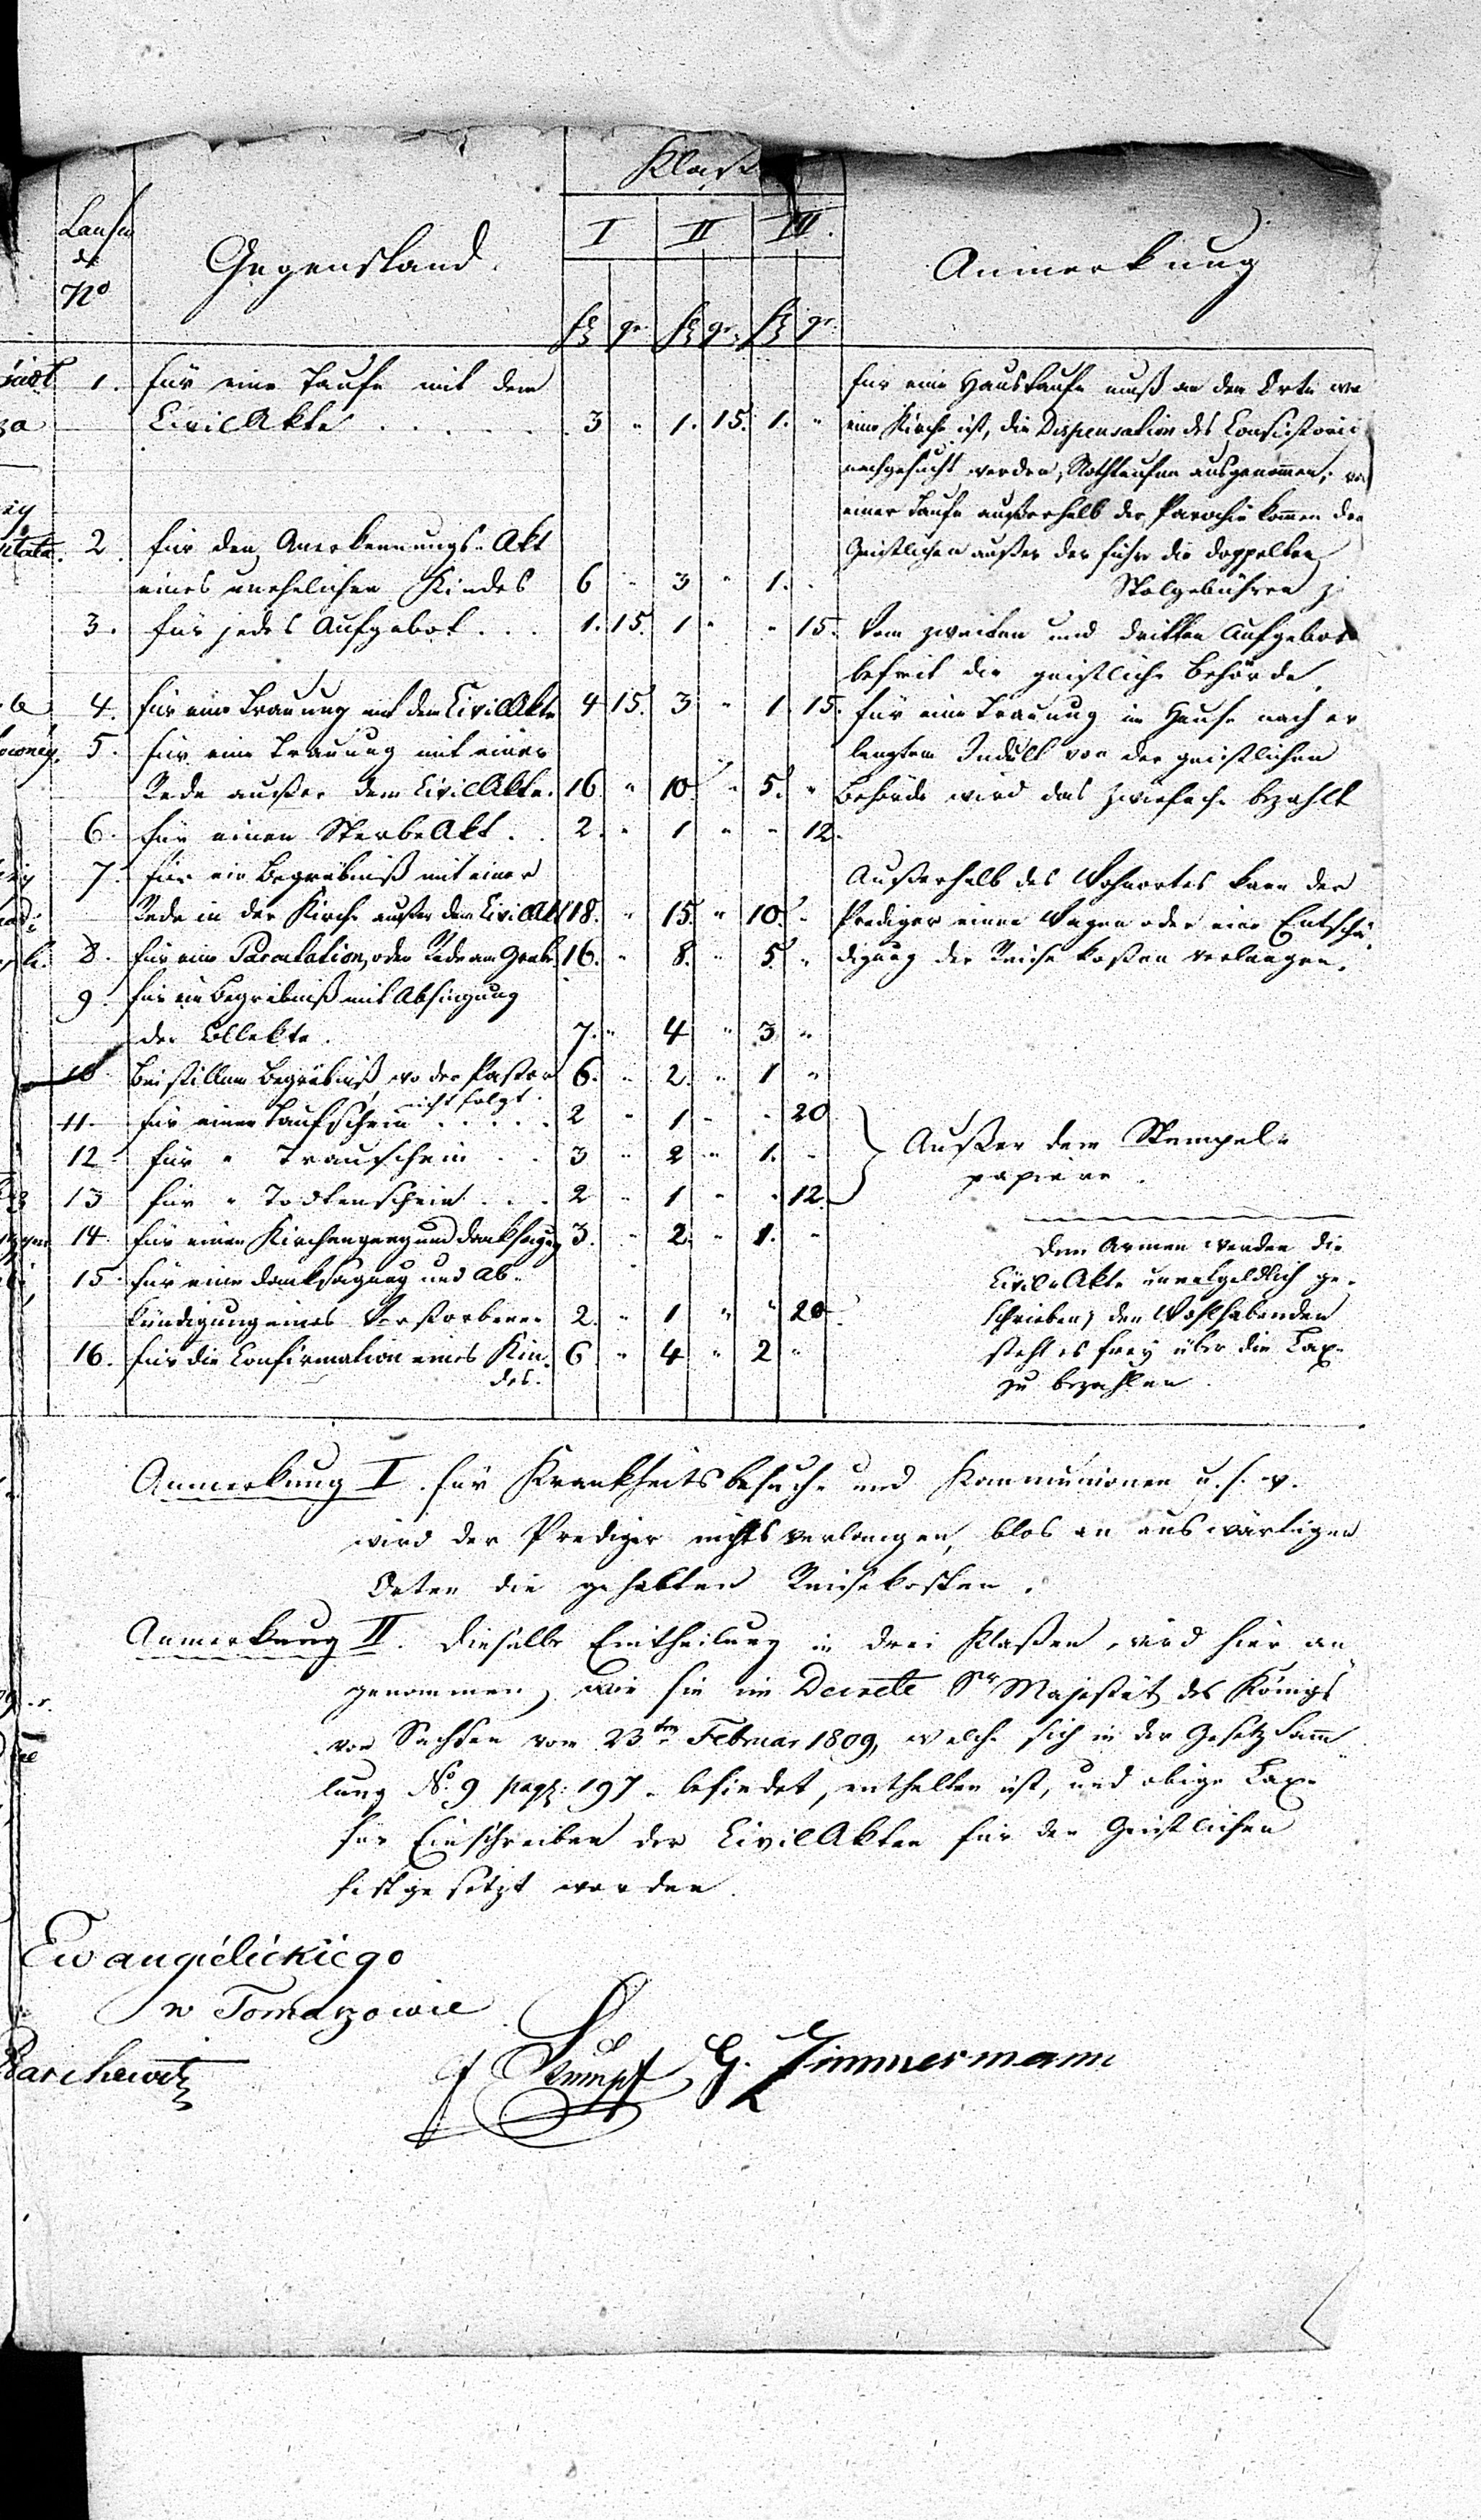 Klaße
Laufen
de
No
Gegenstand.
I II III.
Anmerkung
fl gr. fl gr. fl gr.
1. für eine Taufe mit dem
Civil Akte . . . . . 3 " 1. 15. 1. "
für eine Haustaufe muß an den Orte wo
eine Kirche ist, die Dispensation des Consistorii
nachgesucht werden, Nothtaufen ausgenommen;
einer Taufe außerhalb der Parochie kommen den
Geistlichen außer der fuhre die doppelten
Stolgebühren z.
2. für den Anerkennungs-Akt
eines unehelichen Kindes 6 " 3 " 1. "
3. für jedes Aufgebot . . . 1. 15. 1 " " 15.
Vom zweiten und dritten Aufgebot
befreit die geistliche Behörde.
4. für eine Trauung mit dem Civil Akte 4 15. 3 " 1 15.
für eine Trauung im Hause nach er
langtem Indult von der geistlichen
Behörde wird das zwiefache bezahlt
5. für eine Trauung mit einer
Rede außer dem Civil Akte. 16 " 10. " 5. "
6. für einen Sterbe Akt . . 2. " 1 " " 12.
7. für ein Begräbniß mit einer
Rede in der Kirche außer dem Civil Akt 18. " 15. " 10. "
Außerhalb des Wohnortes kann der
Prediger einen Wagen oder eine Entschä
digung der Reise kosten verlangen.
8. für eine Parentation, oder Rede am Grabe. 16. " 8. " 5. "
9. für ein Begräbniß mit Absingung
der Collekte. 7. " 4 " 3 "
10 Bei stillem Begräbniß, wo der Pastor 6. " 2. " 1 "
nicht folgt.
11. für einen Taufschein . . . . . 2 " 1 " " 20
12 für " Trauschein . . 3 " 2 " 1. "
13 für " Todtenschein . . . 2 " 1 " " 12.
Außer dem Stempel-
papiere.
14. für einen Kirchengang und Danksagung 3. " 2. " 1. "
15. für eine Danksagung und Ab-
kündigung eines Verstorbenen 2. " 1 " " 20.
16. für die Confirmation eines Kin- 6 " 4 " 2 "
des.
Den Armen werden die
Civil-Akte unentgeldlich ge-
schrieben; den Wohlhabenden
steht es frey über die Taxe
zu bezahlen.
Anmerkung I. für Krankheitsbesuche und Kommunionen u. s. w.
wird der Prediger nichts verlangen, blos an auswärtigen
Orten die gehabten Reisekosten.
Anmerkung II. Dieselbe Eintheilung in drei Klaßen, wird hier an
genommen, wie sie im Decrete Sr Majestät des Königs
von Sachsen vom 23ten Februar 1809, welche sich in der Gesetz Samm
lung No. 9 pag: 197. befindet, enthalten ist, und obige Taxe
für Einschreiben der Civil Akten für den Geistlichen
festgesetzt worden.
Ewangielickiego
w Tomaszowie
G. Zimmermann